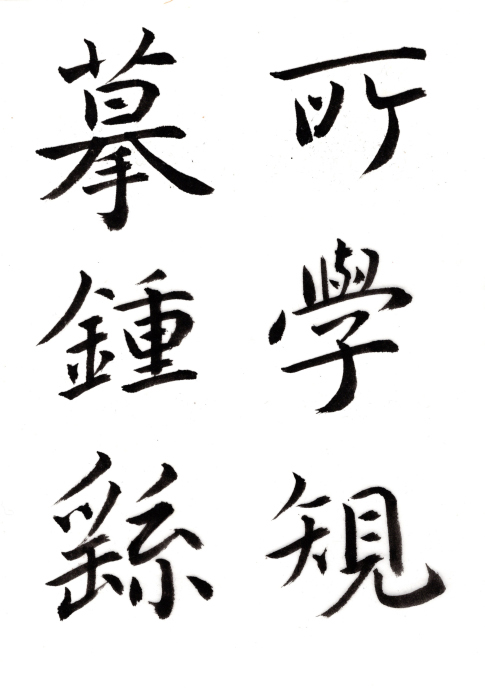 所學規
摹鍾繇